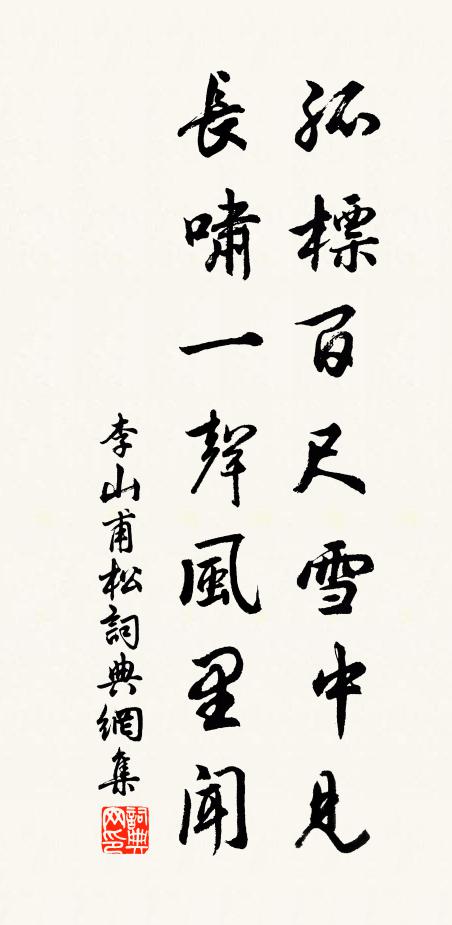 孤標百尺雪中見
長嘯一聲風里聞
李山甫松詞典網集
詞典網印